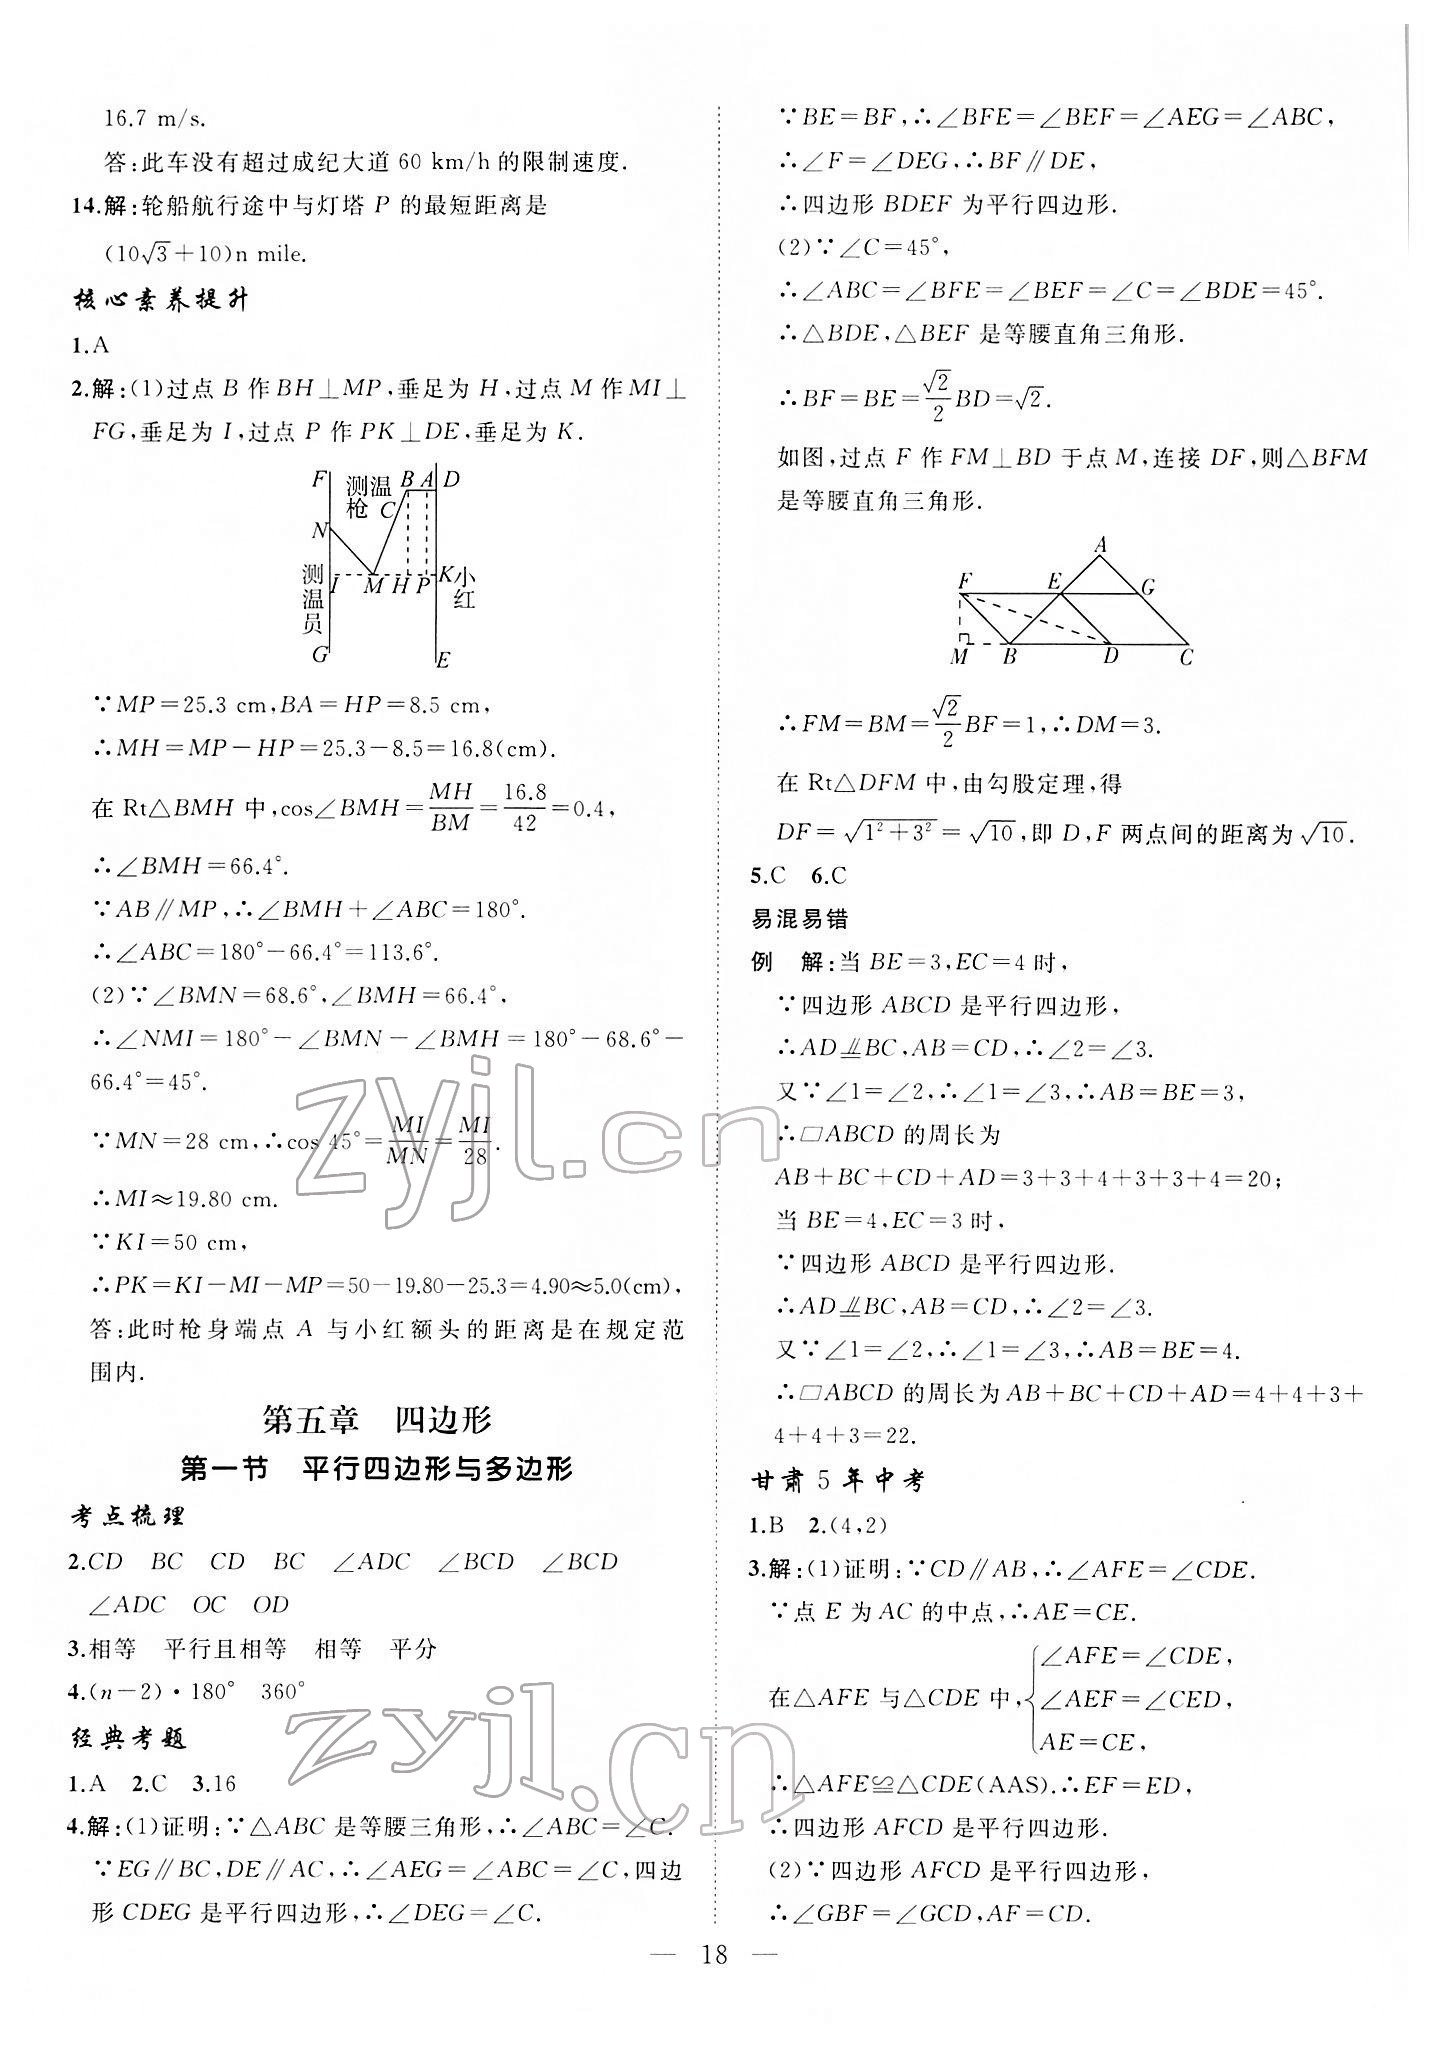 16.7 m/s.
答:此车没有超过成纪大道 60 km/h 的限制速度.
14.解:轮船航行途中与灯塔 P 的最短距离是
(10√3+10)n mile.
核心素养提升
1.A
2.解:(1)过点 B 作 BH⊥MP,垂足为 H,过点 M 作 MI⊥
FG,垂足为 I,过点 P 作 PK⊥DE,垂足为 K.
F 测温枪 B A D
C
N
测温员 I M H P K 小红
G E
∵MP=25.3 cm,BA=HP=8.5 cm,
∴MH=MP-HP=25.3-8.5=16.8(cm).
在 Rt△BMH 中,cos∠BMH=MH/BM=16.8/42=0.4,
∴∠BMH=66.4°.
∵AB∥MP,∴∠BMH+∠ABC=180°.
∴∠ABC=180°-66.4°=113.6°.
(2)∵∠BMN=68.6°,∠BMH=66.4°,
∴∠NMI=180°-∠BMN-∠BMH=180°-68.6°-
66.4°=45°.
∵MN=28 cm,∴cos 45°=MI/MN=MI/28.
∴MI≈19.80 cm.
∵KI=50 cm,
∴PK=KI-MI-MP=50-19.80-25.3=4.90≈5.0(cm),
答:此时枪身端点 A 与小红额头的距离是在规定范
围内.
第五章 四边形
第一节 平行四边形与多边形
考点梳理
2.CD BC CD BC ∠ADC ∠BCD ∠BCD
∠ADC OC OD
3.相等 平行且相等 相等 平分
4.(n-2)·180° 360°
经典考题
1.A 2.C 3.16
4.解:(1)证明:∵△ABC 是等腰三角形,∴∠ABC=∠C.
∵EG∥BC,DE∥AC,∴∠AEG=∠ABC=∠C,四边
形 CDEG 是平行四边形,∴∠DEG=∠C.
∵BE=BF,∴∠BFE=∠BEF=∠AEG=∠ABC,
∴∠F=∠DEG,∴BF∥DE,
∴四边形 BDEF 为平行四边形.
(2)∵∠C=45°,
∴∠ABC=∠BFE=∠BEF=∠C=∠BDE=45°.
∴△BDE,△BEF 是等腰直角三角形.
∴BF=BE=√2/2 BD=√2.
如图,过点 F 作 FM⊥BD 于点 M,连接 DF,则△BFM
是等腰直角三角形.
A
F E G
M B D C
∴FM=BM=√2/2 BF=1,∴DM=3.
在 Rt△DFM 中,由勾股定理,得
DF=√(1²+3²)=√10,即 D,F 两点间的距离为√10.
5.C 6.C
易混易错
例 解:当 BE=3,EC=4 时,
∵四边形 ABCD 是平行四边形,
∴AD⫽BC,AB=CD,∴∠2=∠3.
又∵∠1=∠2,∴∠1=∠3,∴AB=BE=3,
∴▱ABCD 的周长为
AB+BC+CD+AD=3+3+4+3+3+4=20;
当 BE=4,EC=3 时,
∵四边形 ABCD 是平行四边形.
∴AD⫽BC,AB=CD,∴∠2=∠3.
又∵∠1=∠2,∴∠1=∠3,∴AB=BE=4.
∴▱ABCD 的周长为 AB+BC+CD+AD=4+4+3+
4+4+3=22.
甘肃 5 年中考
1.B 2.(4,2)
3.解:(1)证明:∵CD∥AB,∴∠AFE=∠CDE.
∵点 E 为 AC 的中点,∴AE=CE.
∠AFE=∠CDE,
在△AFE 与△CDE 中,{∠AEF=∠CED,
AE=CE,
∴△AFE≌△CDE(AAS).∴EF=ED,
∴四边形 AFCD 是平行四边形.
(2)∵四边形 AFCD 是平行四边形,
∴∠GBF=∠GCD,AF=CD.
— 18 —
zyjl.cn
zyjl.cn